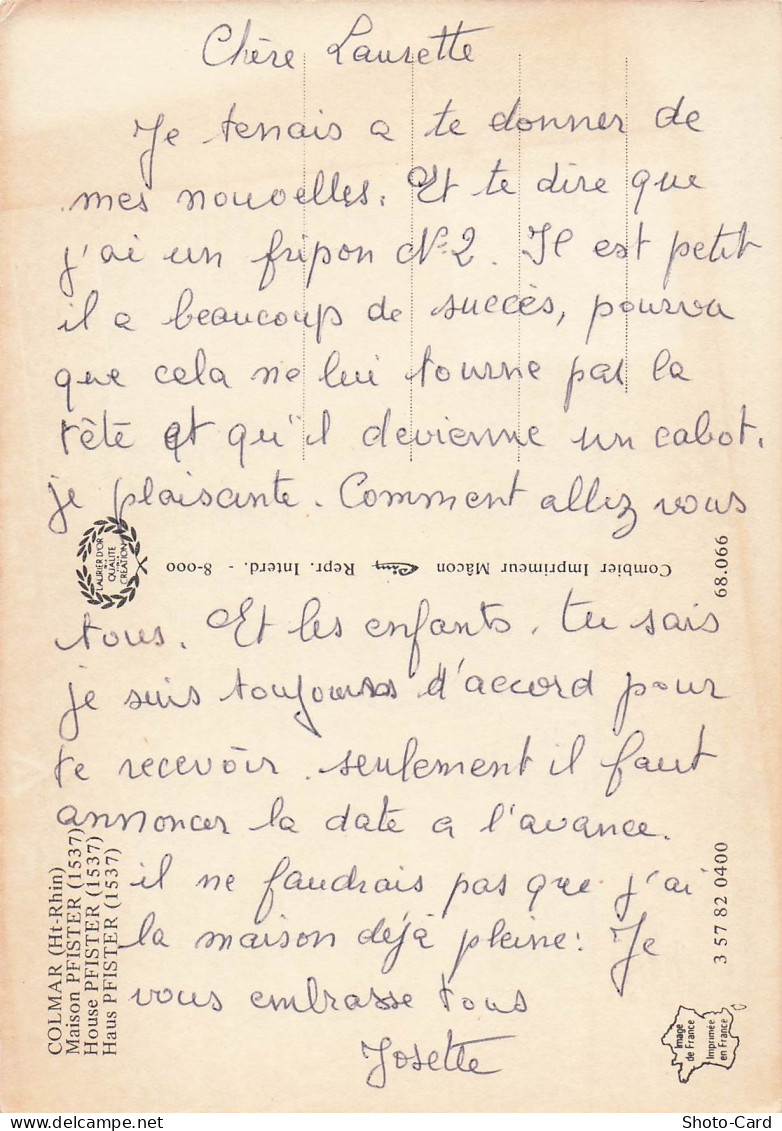 Chère Laurette
Je tenais a te donner de
mes nouvelles. Et te dire que
j'ai un fripon N°2. Il est petit
il a beaucoup de succès, pourvu
que cela ne lui tourne pas la
tête et qu'il devienne un cabot.
je plaisante. Comment allez vous
LAURIER D'OR
DE LA
QUALITÉ
CRÉATION
Combier Imprimeur Mâcon Cim Repr. Interd. - 8-000
68.066
tous. Et les enfants. tu sais
je suis toujours d'accord pour
te recevoir. seulement il faut
annoncer la date a l'avance.
il ne faudrais pas que j'ai
la maison déjà pleine: Je
vous embrasse tous
Josette
COLMAR (Ht-Rhin)
Maison PFISTER (1537)
House PFISTER (1537)
Haus PFISTER (1537)
3 57 82 0400
Image
de France
Imprimée
en France
Photo-Card